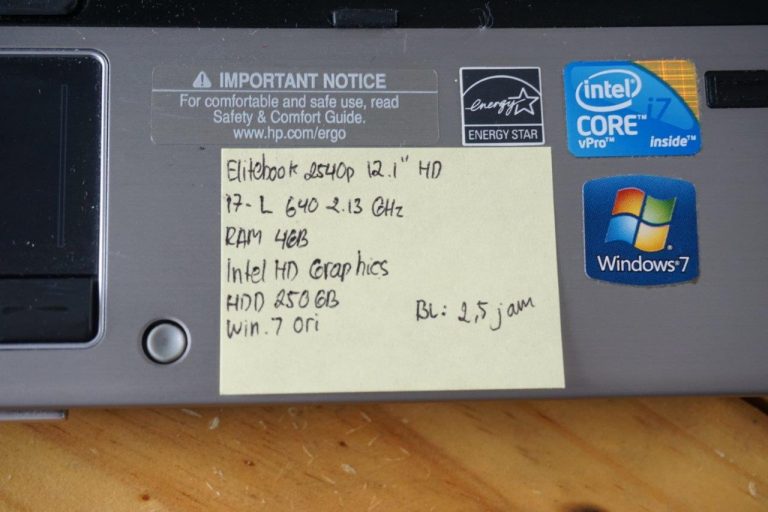 IMPORTANT NOTICE
For comfortable and safe use, read
Safety & Comfort Guide.
www.hp.com/ergo
energy
ENERGY STAR
intel
CORE™ i7
vPro™ inside™
Windows®7
Elitebook 2540p 12.1" HD
i7-L 640 2.13 GHz
RAM 4GB
Intel HD Graphics
HDD 250GB
Win.7 Ori
BL: 2,5 jam